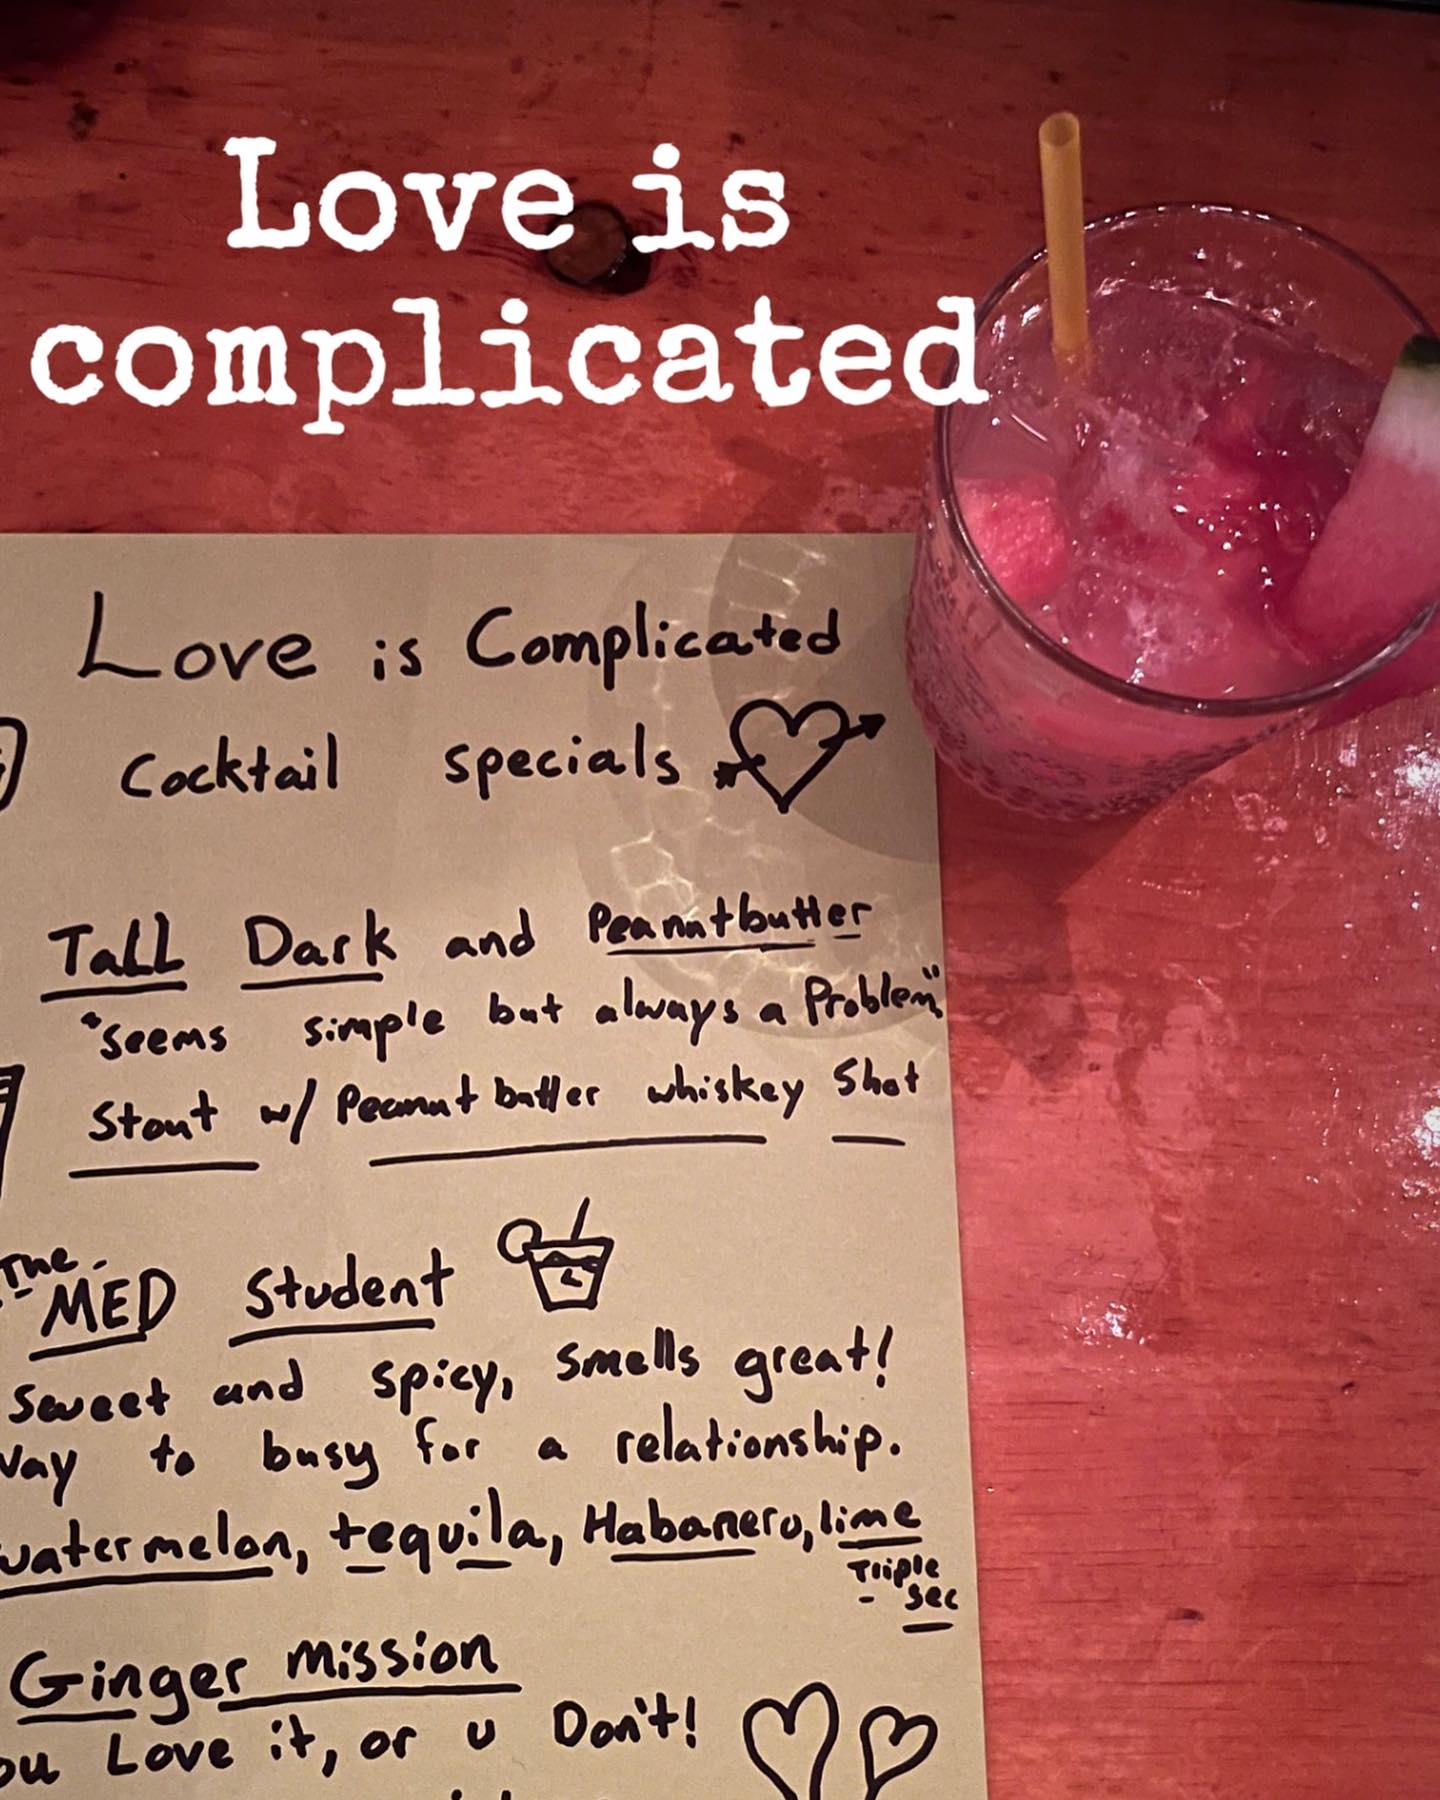 Love is
complicated
Love is Complicated
Cocktail specials
Tall Dark and Peanutbutter
"seems simple but always a Problem"
Stout w/ Peanut butter whiskey Shot
The
MED Student
Sweet and spicy, smells great!
Way to busy for a relationship.
watermelon, tequila, Habanero, lime
Triple
sec
Ginger mission
ou Love it, or u Don't!